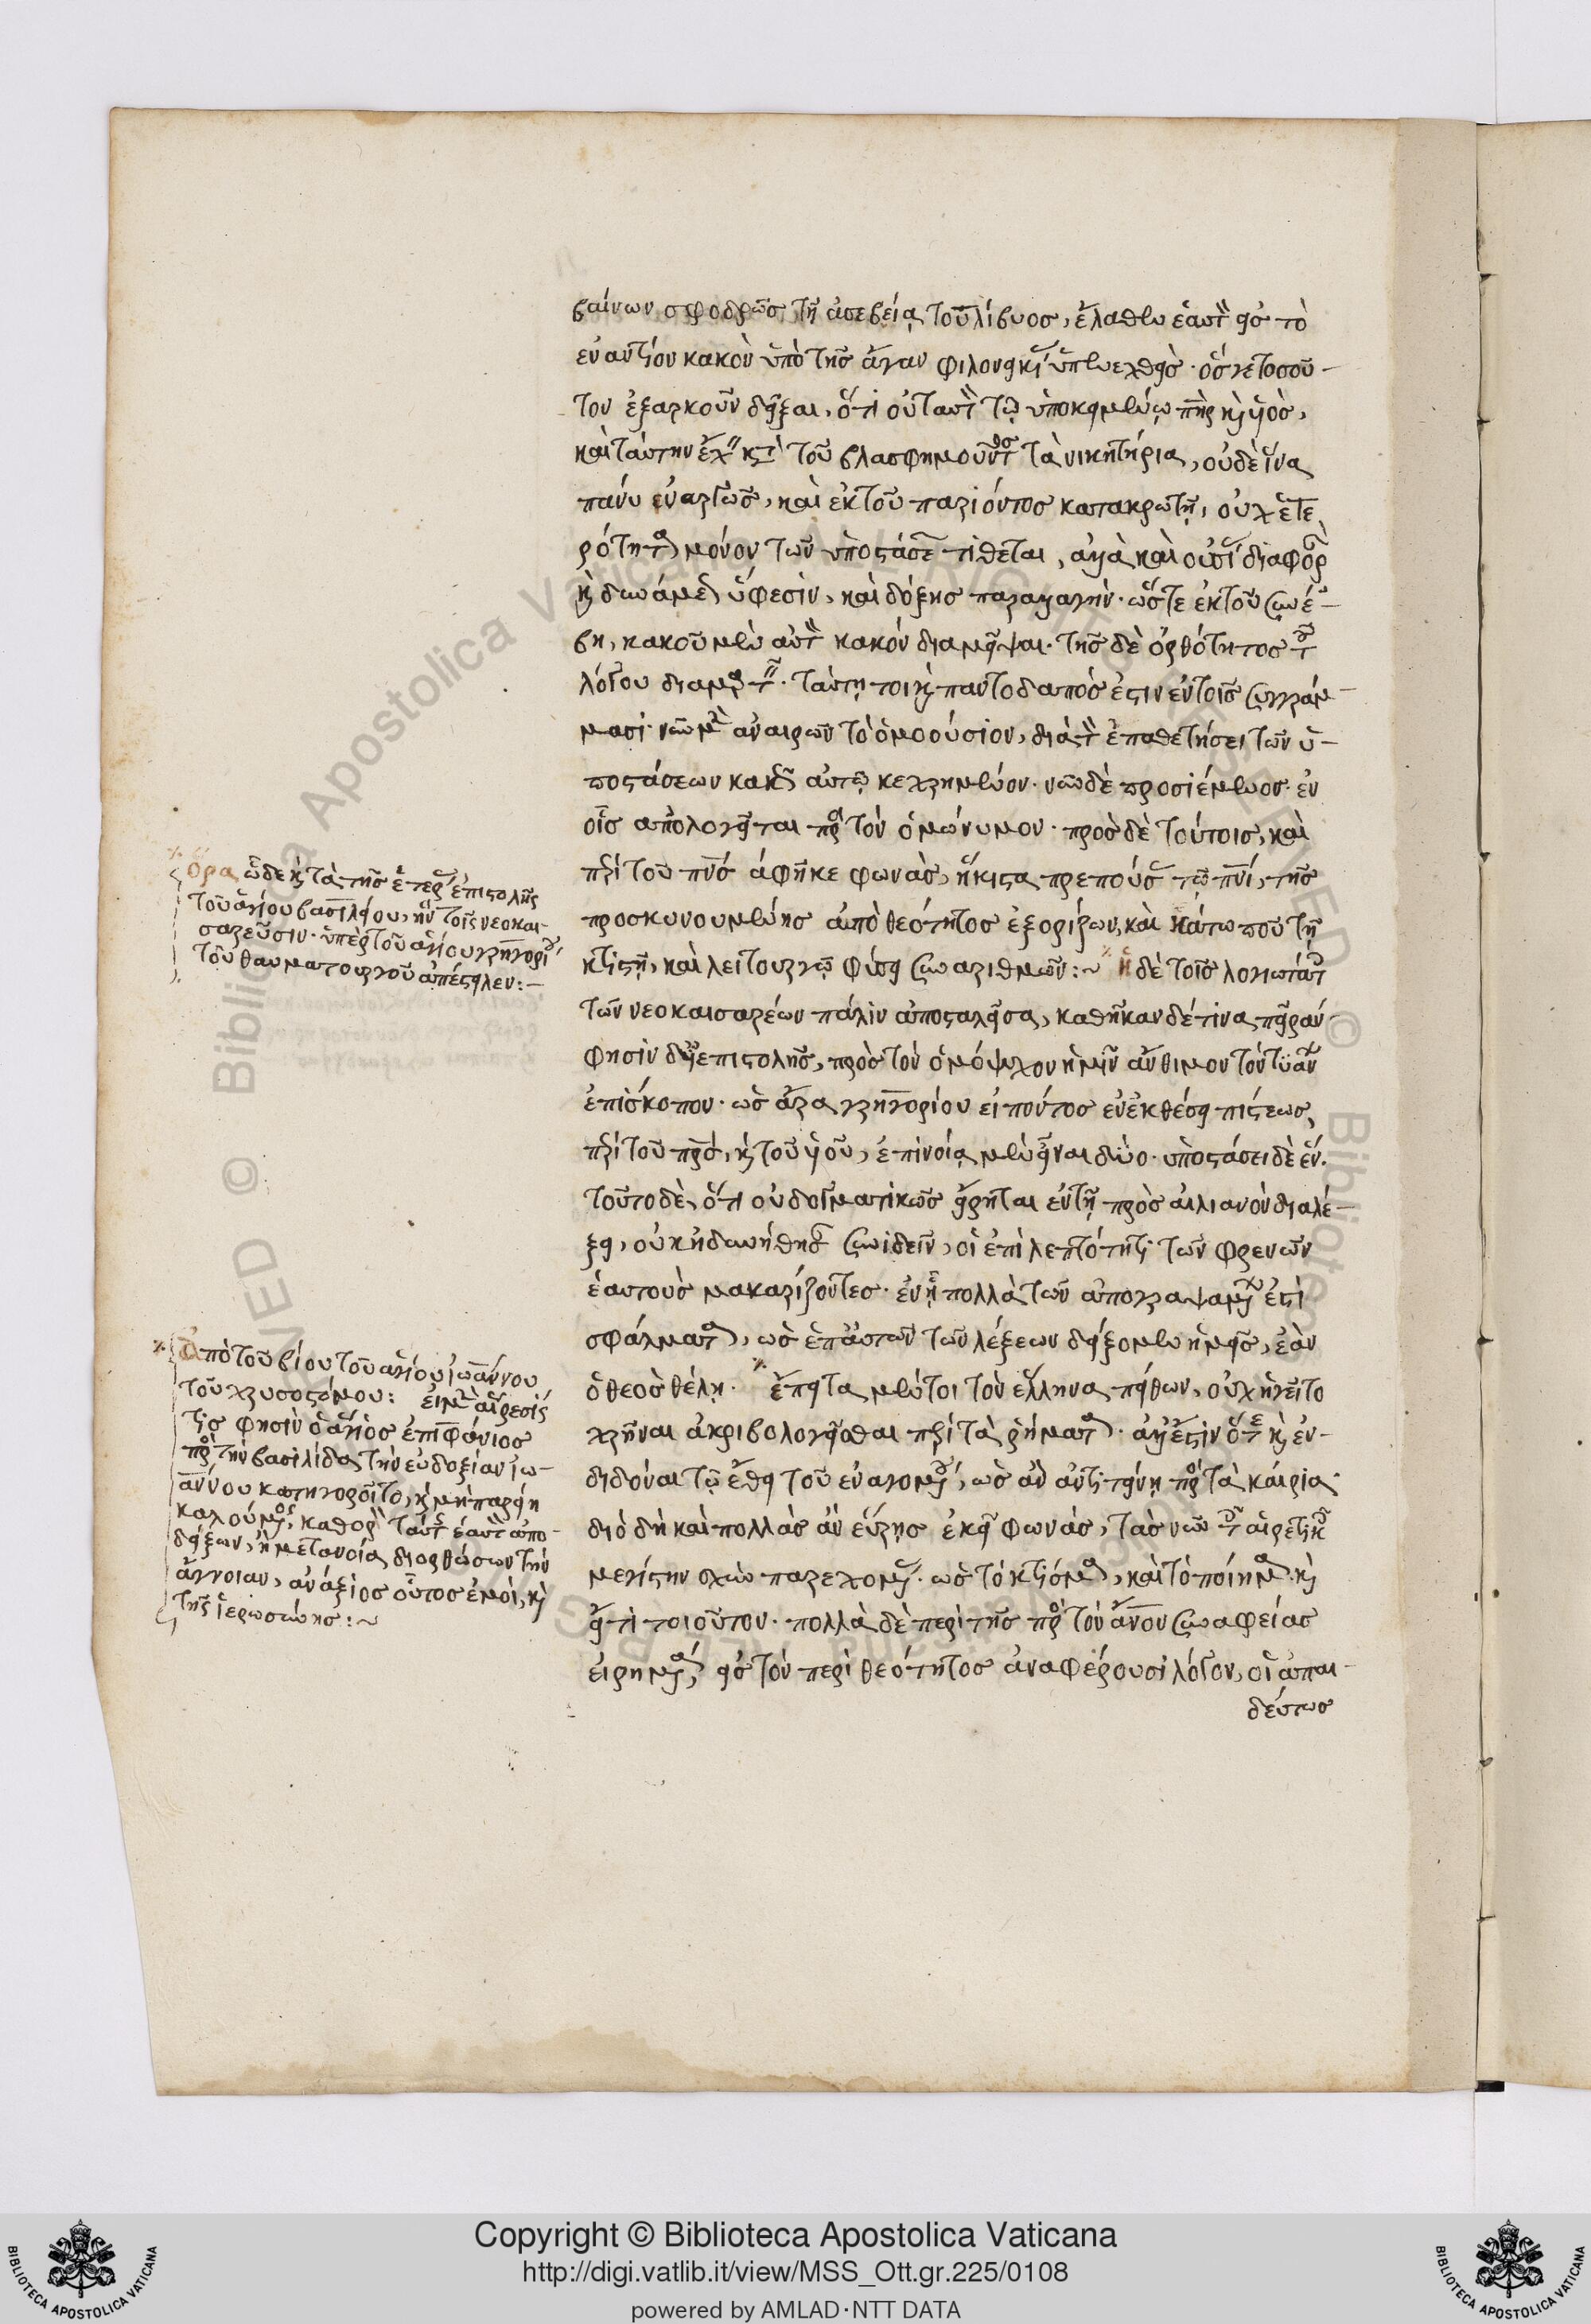 βαίνων σφοδρῶς τῇ ἀσεβείᾳ τοῦ λίβυος, ἔλαθεν ἑαυτὸν εἰς τὸ
ἐναντίον κακὸν ὑπὸ τῆς ἄγαν φιλονεικίας ὑπενεχθείς· ᾧ γε τοσοῦ-
τον ἐξαρκοῦν δεῖξαι, ὅτι οὐ ταυτὸν τῷ ὑποκειμένῳ πὴρ κὶ υἱὸς,
καὶ ταύτην ἔχειν κατὰ τοῦ βλασφημοῦντος τὰ νικητήρια, ὁ δὲ ἵνα
πάνυ ἐναργῶς, καὶ ἐκ τοῦ παριόντος κατακρατῇ, οὐχ ἑτε
ρότητα μόνον τῶν ὑποστάσεων τίθεται, ἀλλὰ καὶ οὐσίας διαφορὰν
κὶ δυνάμεως ὕφεσιν, καὶ δόξης παραλλαγήν· ὥστε ἐκ τοῦ συνέ-
βη, κακοῦ μὲν αὐτὸν κακὸν διαμεῖψαι· τῆς δὲ ὀρθότητος τοῦ
λόγου διαμαρτεῖν· ταύτῃ τοι κὶ παντοδαπός ἐστιν ἐν τοῖς συγγράμ-
μασι· νῦν μὲν ἀναιρῶν τὸ ὁμοούσιον, διὰ τὸν ἐπ' ἀθετήσει τῶν ὑ-
ποστάσεων κακῶς αὐτῷ κεχρημένον· νῦν δὲ προσιέμενος· ἐν
οἷς ἀπολογεῖται πρὸς τὸν ὁμώνυμον· πρὸς δὲ τούτοις, καὶ
περὶ τοῦ πνς ἀφῆκε φωνὰς, ἥκιστα πρεπούσας τῷ πνι, τῆς
προσκυνουμένης αὐτὸ θεότητος ἐξορίζων, καὶ κάτω που τῇ
κτιστῇ, καὶ λειτουργῷ φύσει συναριθμῶν:~ ἡ δὲ τοῖς λογιωτάτοις
τῶν νεοκαισαρέων πάλιν ἀποσταλεῖσα, καθῆκαν δέ τινα πεῖραν
φησὶν δι' ἐπιστολῆς, πρὸς τὸν ὁμόψυχον ἡμῶν ἄνθιμον τὸν τυάνων
ἐπίσκοπον· ὡς ἄρα γρηγορίου εἰπόντος ἐν ἐκθέσει πίστεως,
περὶ τοῦ πρς, κὶ τοῦ υἱοῦ, ἐπινοίᾳ μὲν εἶναι δύο· ὑποστάσει δὲ ἕν.
τοῦτο δὲ, ὅτι οὐ δογματικῶς εἴρηται ἐν τῇ πρὸς αἰλιανὸν διαλέ-
ξει, οὐκ ἠδυνήθησαν συνιδεῖν, οἱ ἐπὶ λεπτότητι τῶν φρενῶν
ἑαυτοὺς μακαρίζοντες· ἐν ᾗ πολλὰ τῶν ἀπογραψαμένων ἐστὶ
σφάλματα, ὡς ἐπ' αὐτῶν τῶν λέξεων δείξομεν ἡμεῖς, ἐὰν
ὁ θεὸς θέλῃ. ἔπειτα μέντοι τὸν ἕλληνα πείθων, οὐχ ἡγεῖτο
χρῆναι ἀκριβολογεῖσθαι περὶ τὰ ῥήματα· ἀλλ' ἔστιν ὅτε κὶ ἐν-
διδόναι τῷ ἔθει τοῦ ἐναγομένου, ὡς ἂν ἀντιτείνῃ πρὸς τὰ καίρια·
διὸ δὴ καὶ πολλὰς ἂν εὕρῃς ἐκεῖ φωνάς, τὰς νῦν τοῖς αἱρετικοῖς
μεγίστην ἰσχὺν παρεχομένας· ὡς τὸ κτίσμα, καὶ τὸ ποίημα· κὶ
εἴ τι τοιοῦτον· πολλὰ δὲ περὶ τῆς πρὸς τὸν ἄνον συναφείας
εἰρημένα, εἰς τὸν περὶ θεότητος ἀναφέρουσι λόγον, οἱ ἀπαι-
δεύτως
ὅρα ὧδε κὶ τὰ τῆς ἑτέρας ἐπιστολῆς
τοῦ ἁγίου βασιλείου, ἣν τοῖς νεοκαι-
σαρεῦσιν· ὑπὲρ τοῦ ἁγίου γρηγορίου
τοῦ θαυματουργοῦ ἀπέστειλεν:–
Ἀπὸ τοῦ βίου τοῦ ἁγίου ἰωάννου
τοῦ χρυσοστόμου: εἰ μὲν αἵρεσίς
τις φησὶν ὁ ἅγιος ἐπιφάνιος
πρὸς τὴν βασιλίδα τὴν εὐδοξίαν ἰω-
άννου κατηγοροῖτο, κὶ μὴ παρείη
καλούμενος, καθαρὸν ταύτης ἑαυτὸν ἀπο-
δείξων, ἢ μετανοίᾳ διορθώσων τὴν
ἄγνοιαν, ἀνάξιος οὗτος ἐμοὶ, κὶ
τῆς ἱερωσύνης:~
Copyright © Biblioteca Apostolica Vaticana
http://digi.vatlib.it/view/MSS_Ott.gr.225/0108
powered by AMLAD·NTT DATA